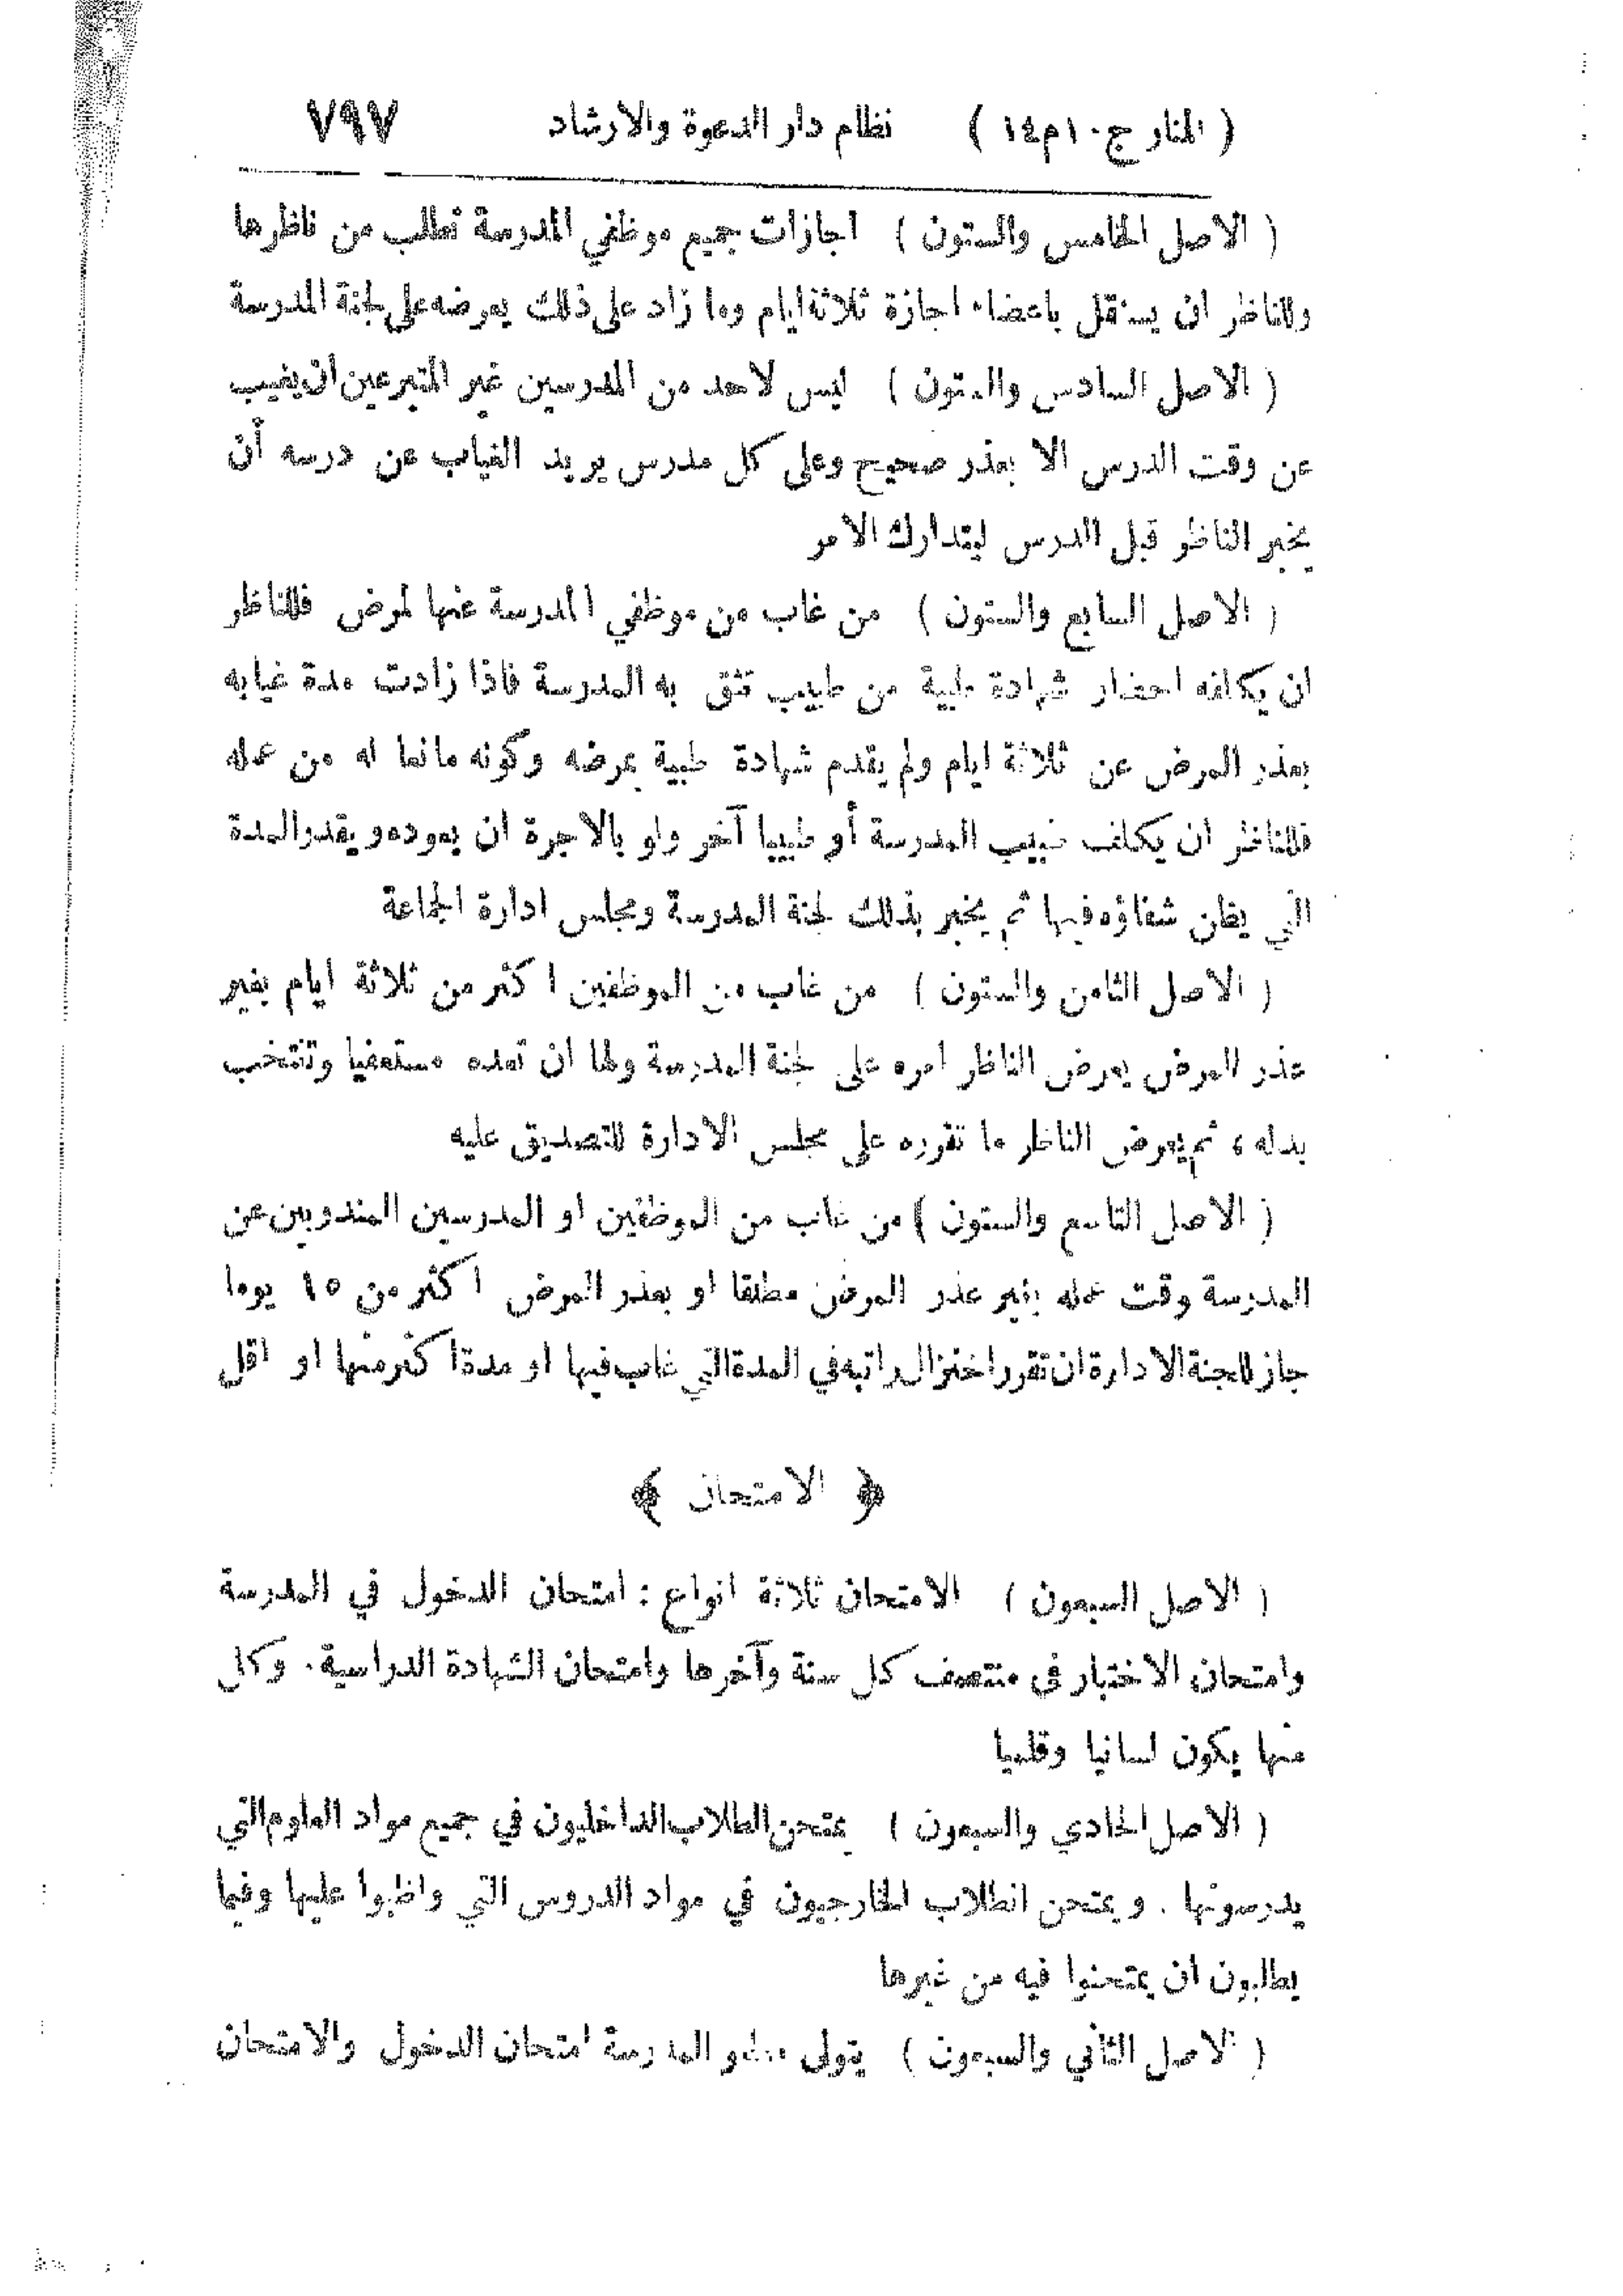 ( المنار ج١٠م١٤ ) نظام دار الدعوة والارشاد ٧٩٧
( الاصل الخامس والستون ) اجازات جميع موظفي المدرسة تطلب من ناظرها
وللناظر ان يستقل باعضاء اجازة ثلاثة ايام وما زاد على ذلك يعرضه على لجنة المدرسة
( الاصل السادس والستون ) ليس لاحد من المدرسين غير المتبرعين ان يغيب
عن وقت الدرس الا بعذر صحيح وعلى كل مدرس يريد الغياب عن درسه أن
يخبر الناظر قبل الدرس ليتدارك الامر
( الاصل السابع والستون ) من غاب من موظفي المدرسة عنها لمرض فللناظر
ان يكلفه احضار شهادة طبية من طبيب تثق به المدرسة فاذا زادت مدة غيابه
بعذر المرض عن ثلاثة ايام ولم يقدم شهادة طبية بمرضه وكونه مانعا له من عمله
فللناظر ان يكلف طبيب المدرسة أو طبيبا آخر ولو بالاجرة ان يعوده ويقدر المدة
التي يظن شفاؤه فيها ثم يخبر بذلك لجنة المدرسة ومجلس ادارة الجماعة
( الاصل الثامن والستون ) من غاب من الموظفين اكثر من ثلاثة ايام بغير
عذر المرض يعرض الناظر امره على لجنة المدرسة ولها ان تعده مستعفيا وتنتخب
بدله ، ثم يعرض الناظر ما تقرره على مجلس الادارة للتصديق عليه
( الاصل التاسع والستون ) من غاب من الموظفين او المدرسين المندوبين عن
المدرسة وقت عمله بغير عذر المرض مطلقا او بعذر المرض اكثر من ١٥ يوما
جاز للجنة الادارة ان تقرر اختزال راتبه في المدة التي غاب فيها او مدة اكثر منها او اقل
﴿ الامتحان ﴾
( الاصل السبعون ) الامتحان ثلاثة انواع : امتحان الدخول في المدرسة
وامتحان الاختبار في منتصف كل سنة وآخرها وامتحان الشهادة الدراسية. وكل
منها يكون لسانيا وقلميا
( الاصل الحادي والسبعون ) يمتحن الطلاب الداخليون في جميع مواد العلوم التي
يدرسونها . ويمتحن الطلاب الخارجيون في مواد الدروس التي واظبوا عليها وفيما
يطلبون ان يمتحنوا فيه من غيرها
( الاصل الثاني والسبعون ) يتولى معلمو المدرسة امتحان الدخول والامتحان